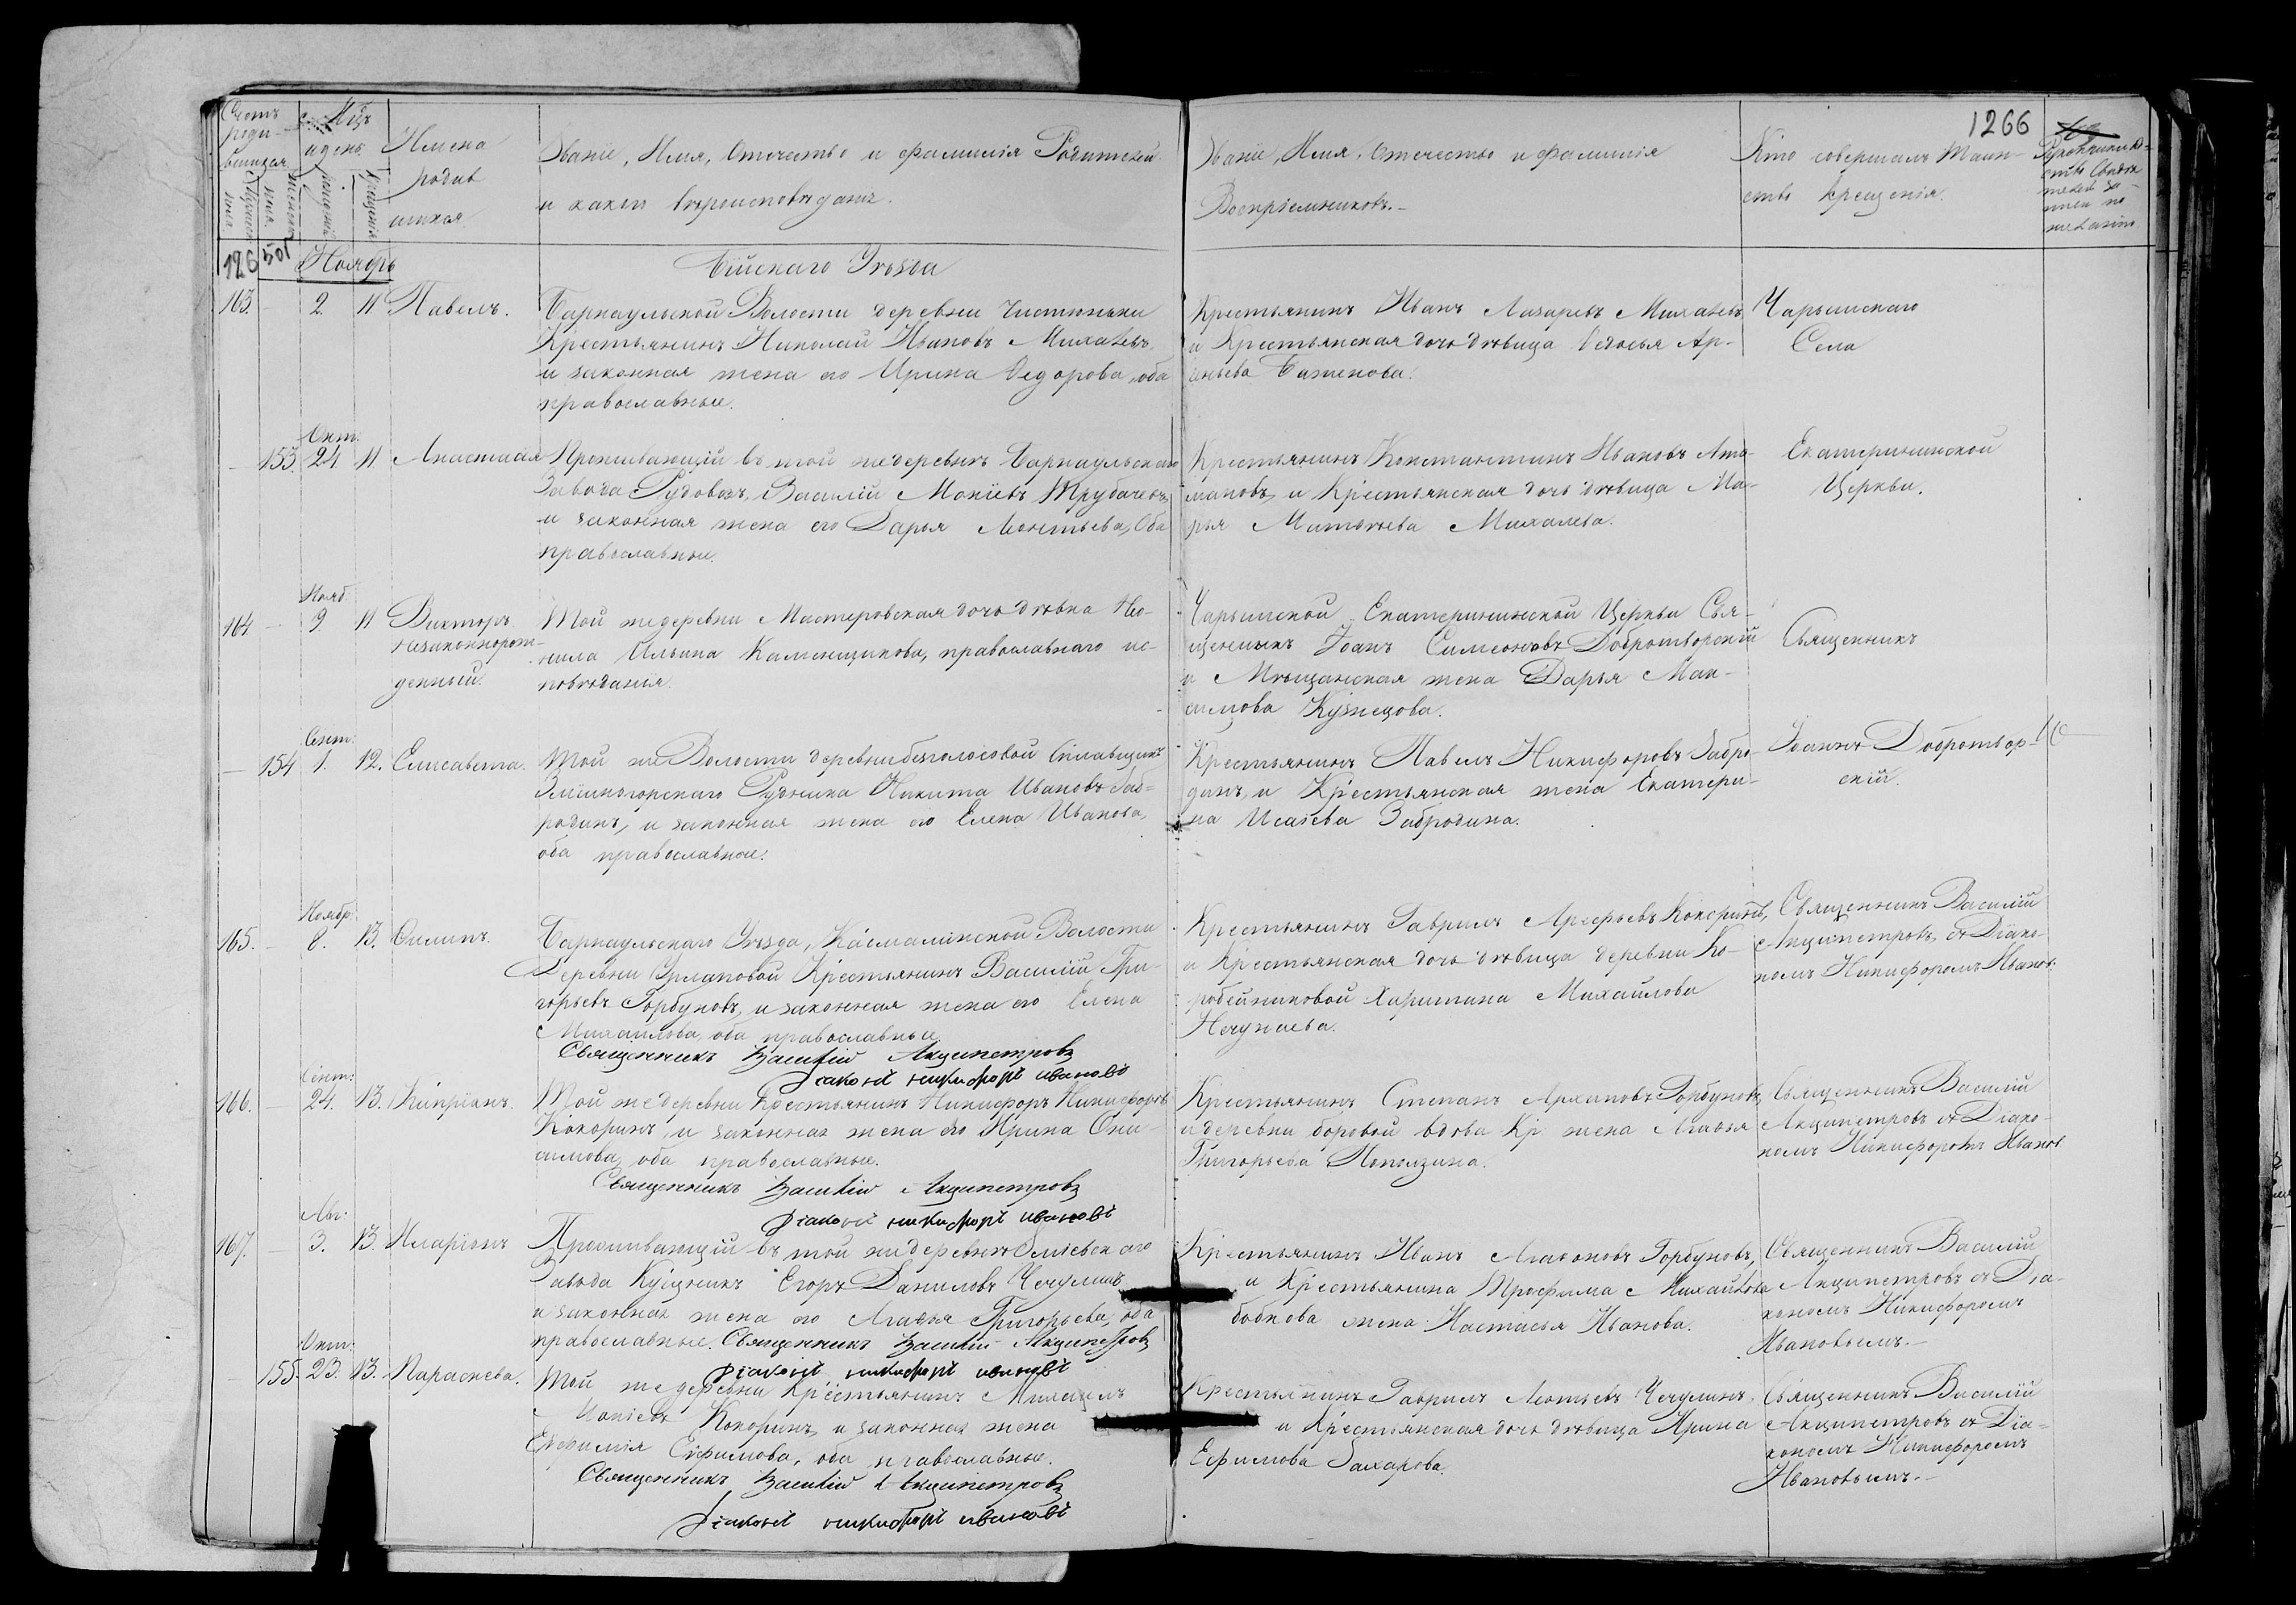 Счетъ роди-вшихся
Мѣц. и день
Имена родившихся
Званіе, Имя, Отчество и фамилія Родителей
и какого вѣроисповѣданія.
Званіе, Имя, Отчество и фамилія
Воспріемниковъ.
1266
Кто совершалъ Таин-
ство крещенія.
126 501 Ноябрь
Бійскаго Уѣзда
163. 2. 11 Павелъ.
Барнаульской Волости деревни Чистюньки
Крестьянинъ Николай Ивановъ Михалевъ
и законная жена его Ирина Ѳедорова, оба
православные.
Крестьянинъ Иванъ Лазаревъ Михалевъ
и Крестьянская дочь дѣвица Ѳедосья Ар-
Баженова.
Чарышскаго
Села
Окт.
153. 24. 11. Анастасія
Проживающій въ той же деревнѣ Барнаульскаго
Завода Рудовозъ, Василій Мокіевъ Трубачевъ,
и законная жена его Дарья Леонтьева, Оба
православные.
Крестьянинъ Константинъ Ивановъ Ата-
мановъ, и Крестьянская дочь дѣвица Ма-
рья Матвѣева Михалева.
Екатерининской
Церкви.
Нояб.
164 9. 11 Викторъ
незаконнорож-
денный.
Той же деревни Мастеровская дочь дѣвка Нео-
нила Ильина Каменщикова, православнаго ис-
повѣданія.
Чарышской Екатерининской Церкви Свя-
щенникъ Іоанъ Симеоновъ Добротворскій
и Мѣщанская жена Дарья Мак-
симова Кузнецова.
Священникъ
Сент.
154 1. 12. Елисавета.
Той же Волости деревни безголосовой Сплавщикъ
Змѣиногорскаго Рудника Никита Ивановъ Заб-
родинъ, и законная жена его Елена Иванова,
оба православные.
Крестьянинъ Павелъ Никифоровъ Забро-
динъ, и Крестьянская жена Екатери-
на Исаѣева Забродина.
Іоаннъ Добротвор-
скій.
Ноябр.
165. 8. 13. Филипъ.
Барнаульскаго Уѣзда, Касмалинской Волости
Деревни Урлаповой Крестьянинъ Василій Гри-
горьевъ Горбуновъ, и законная жена его Елена
Михайлова, оба православные
Священникъ Василій Акципетровъ
Діаконъ никифоръ ивановъ
Крестьянинъ Гаврилъ Арефьевъ Кокоринъ,
и Крестьянская дочь дѣвица деревни Ко-
робейниковой Харитина Михайлова
Нечунаева.
Священникъ Василій
Акципетровъ, съ Діако-
номъ Никифоромъ Иванов.
Сент.
166. 24. 13. Кипріанъ.
Той же деревни Крестьянинъ Никифоръ Никифоровъ
Кокоринъ, и законная жена его Ирина Они-
симова, оба православные.
Священникъ Василій Акципетровъ
Діаконъ никифоръ ивановъ
Крестьянинъ Степанъ Архиповъ Горбуновъ,
и деревни боровой вдова Кр. жена Агафья
Григорьева Поползина.
Священникъ Василій
Акципетровъ съ Діако-
номъ Никифоромъ Иванов
Авг.
167. 3. 13. Иларіонъ
Проживающій въ той же деревнѣ Змѣевскаго
Завода Кузнецъ Егоръ Даниловъ Чечулинъ
и законная жена его Агафья Григорьева, оба
православные. Священникъ Василій Акципетровъ
Діаконъ никифоръ ивановъ
Крестьянинъ Иванъ Агафоновъ Горбуновъ,
и Крестьянина Трофима Михайлова
бобкова жена Настасья Иванова.
Священникъ Василій
Акципетровъ съ Діа-
кономъ Никифоромъ
Ивановымъ.
Окт.
155. 23. 13. Параскева.
Той же деревни Крестьянинъ Михаилъ
Кокоринъ, и законная жена
Евфимія Ефимова, оба православные.
Священникъ Василій Акципетровъ
Діаконъ никифоръ ивановъ
Крестьянинъ Гаврилъ Чечулинъ,
и Крестьянская дочь дѣвица Ирина
Ефимова Захарова.
Священникъ Василій
Акципетровъ съ Діа-
кономъ Никифоромъ
Ивановымъ.